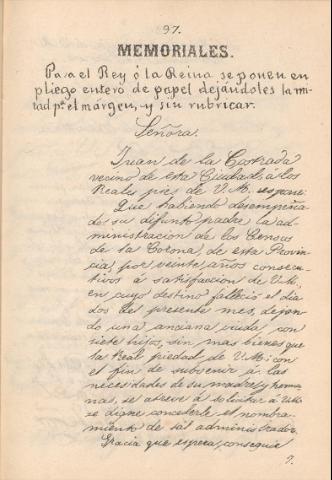 97.
MEMORIALES.
Para el Rey ó la Reina se ponen en
pliego entero de papel dejándoles la mi-
tad pª el márgen, y sin rubricar.
Señora.
Juan de la Costrada
vecino de esta Ciudad, á los
Reales pies de V.M. espone:
Que habiendo desempeña-
do su difunto padre la ad-
ministracion de los Censos
de la Corona, de esta Provin-
cia, por veinte años consecu-
tivos á satisfaccion de V.M.
en cuyo destino falleció el dia
dos del presente mes, dejan-
do una anciana viuda con
siete hijos, sin mas bienes que
la Real piedad de V.M.: con
el fin de subvenir á las
necesidades de su madre y herma-
nas, se atreve á solicitar á V.M.
se digne concederle el nombra-
miento de tal administrador.
Gracia que espera conseguir
7.